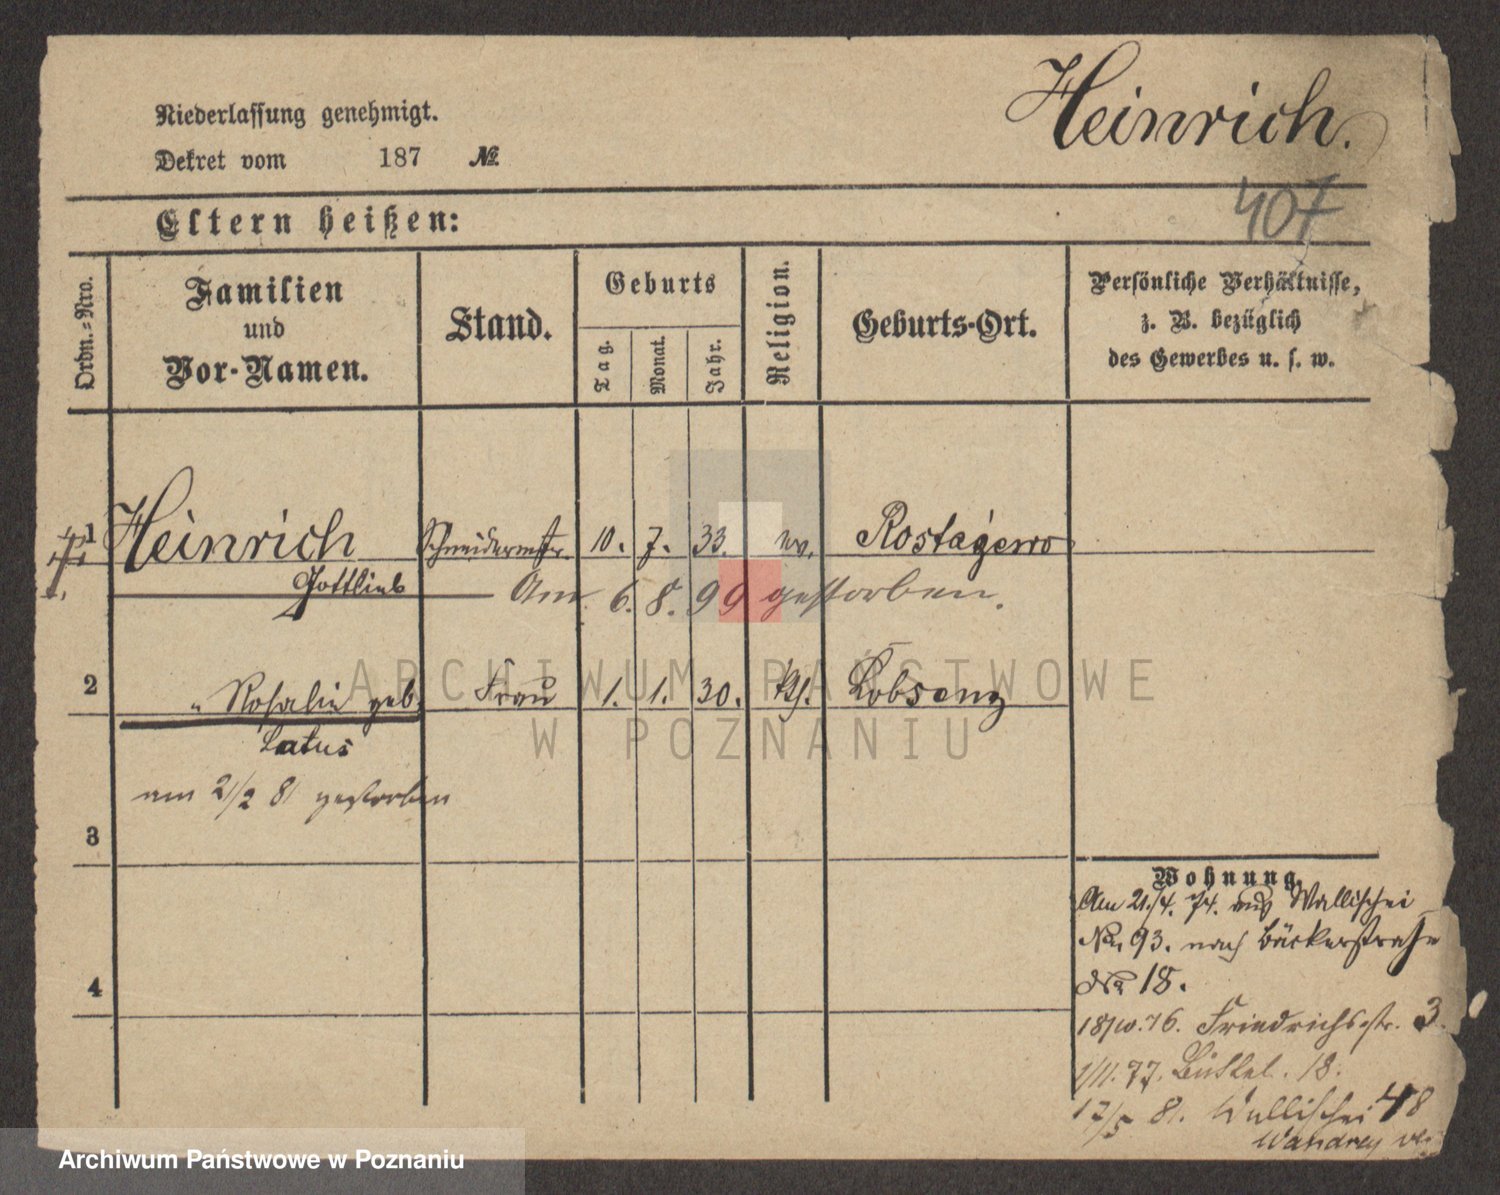 Niederlassung genehmigt.
Heinrich.
Dekret vom 187 №
407
Eltern heißen:
Ordn.=Nro.
Familien und Vor-Namen.
Stand.
Geburts
Tag.
Monat.
Jahr.
Religion.
Geburts-Ort.
Persönliche Verhältnisse,
z. B. bezüglich
des Gewerbes u. s. w.
1 Heinrich Schneidermstr. 10. 7. 33. ev. Rostagewo
Gottlieb Am 6. 8. 99 gestorben.
2 " Rosalie geb. Frau 1. 1. 30. kth. Lobsenz
Latus
am 2/2 81 gestorben
3
4
Wohnung.
Am 21./4. 74. aus Wallischei
No. 93. nach Bäckerstraße
No 18.
18/10. 76. Friedrichsstr. 3.
1/11. 77. 18.
17/5 81. Wallischei 48
ARCHIWUM PAŃSTWOWE
W POZNANIU
Archiwum Państwowe w Poznaniu